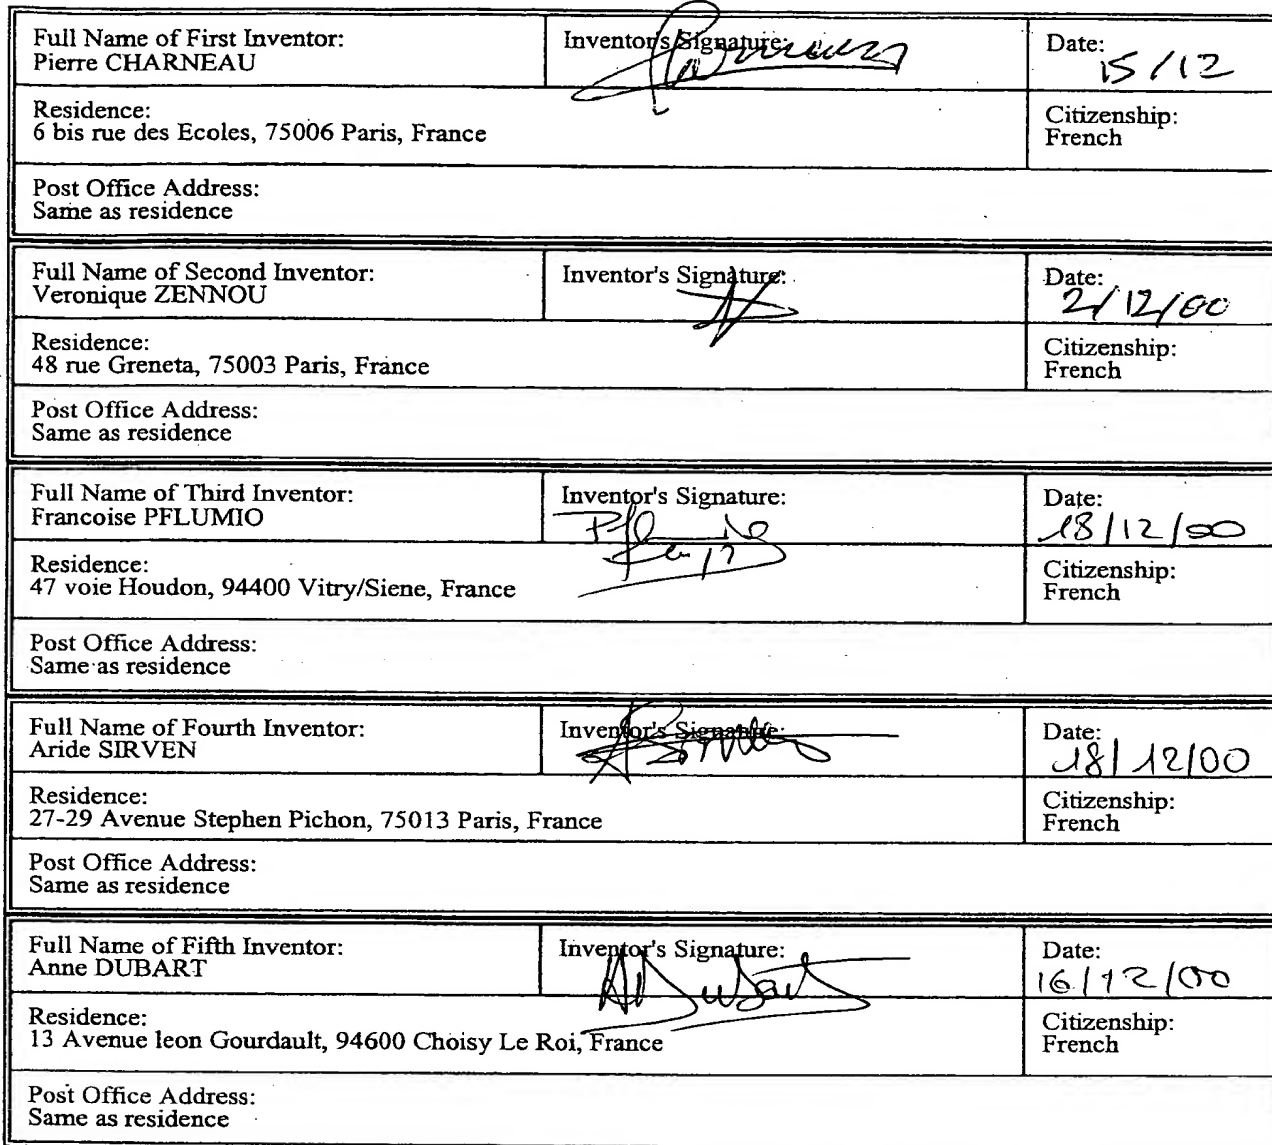 Full Name of First Inventor:
Pierre CHARNEAU
Inventor's Signature:
Date:
15/12
Residence:
6 bis rue des Ecoles, 75006 Paris, France
Citizenship:
French
Post Office Address:
Same as residence
Full Name of Second Inventor:
Veronique ZENNOU
Inventor's Signature:
Date:
2/12/00
Residence:
48 rue Greneta, 75003 Paris, France
Citizenship:
French
Post Office Address:
Same as residence
Full Name of Third Inventor:
Francoise PFLUMIO
Inventor's Signature:
Date:
18/12/00
Residence:
47 voie Houdon, 94400 Vitry/Siene, France
Citizenship:
French
Post Office Address:
Same as residence
Full Name of Fourth Inventor:
Aride SIRVEN
Inventor's Signature:
Date:
18/12/00
Residence:
27-29 Avenue Stephen Pichon, 75013 Paris, France
Citizenship:
French
Post Office Address:
Same as residence
Full Name of Fifth Inventor:
Anne DUBART
Inventor's Signature:
ADubart
Date:
16/12/00
Residence:
13 Avenue leon Gourdault, 94600 Choisy Le Roi, France
Citizenship:
French
Post Office Address:
Same as residence